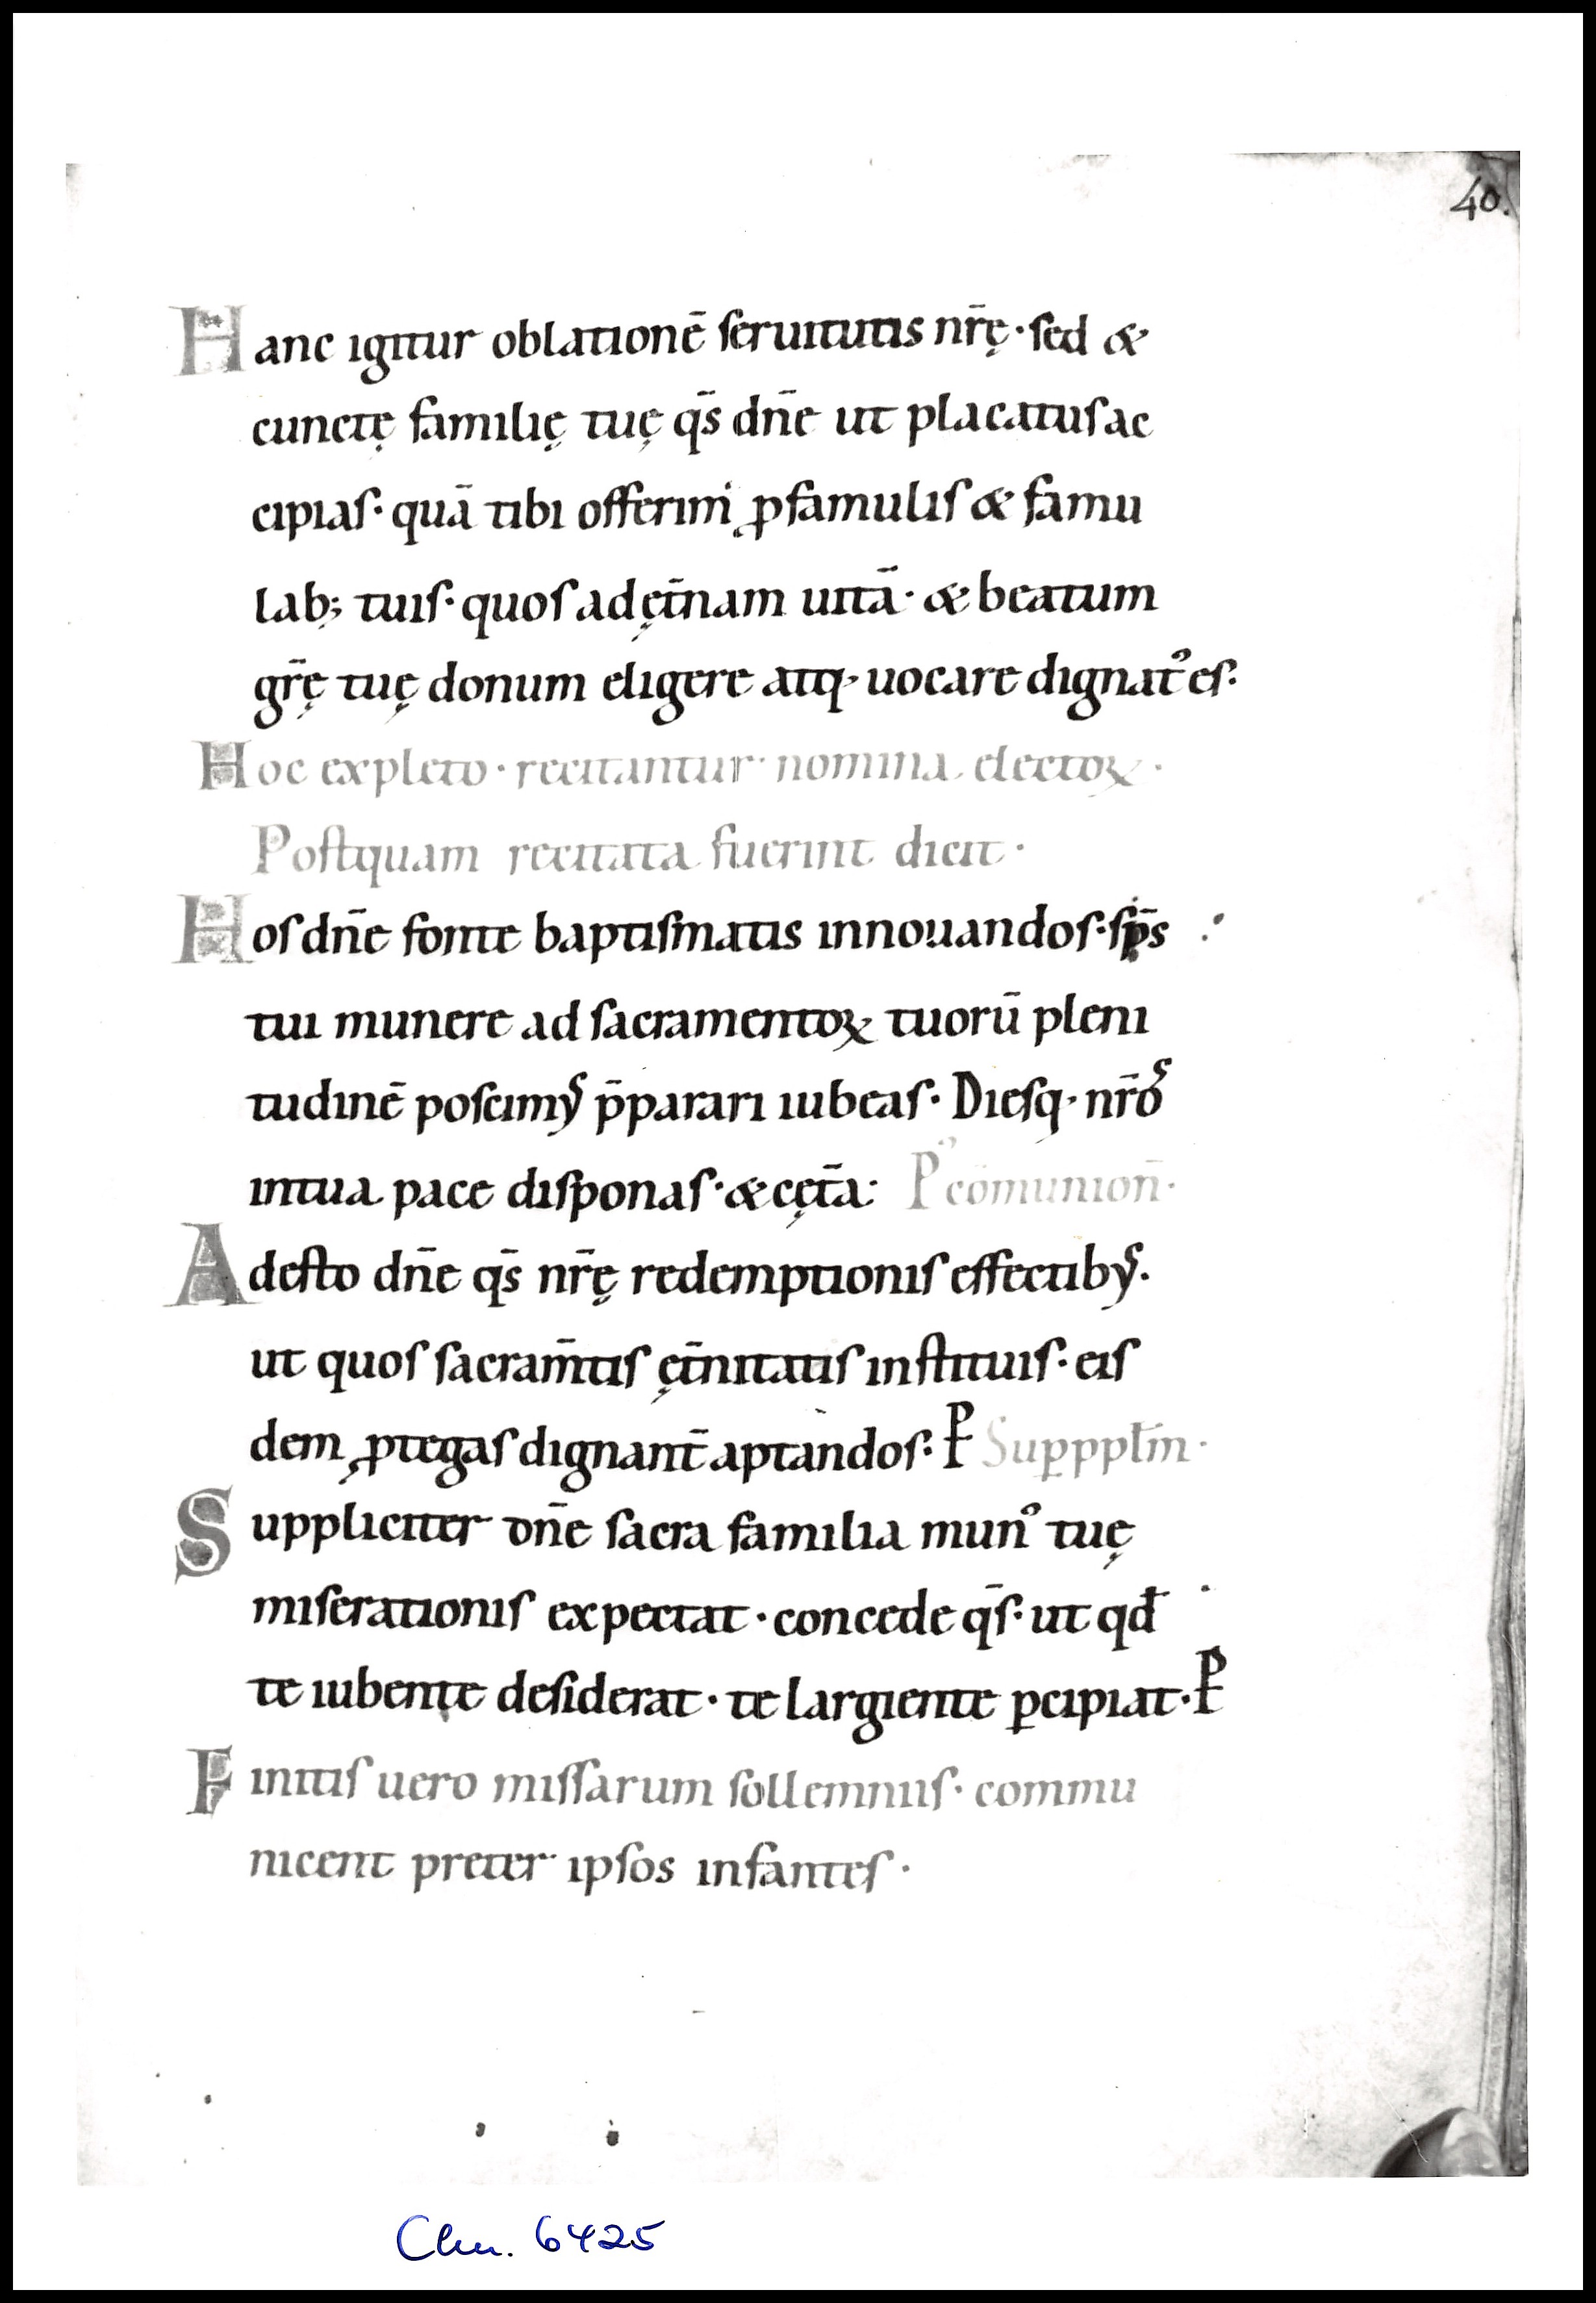 40.
Hanc igitur oblationē seruitutis nr̄ę · sed &
cunctę familię tuę qs̄ dn̄e ut placatus ac
cipias · quā tibi offerim' ꝓ famulis & famu
lab; tuis · quos ad ęt̄nam uitā · & beatum
gr̄ę tuę donum eligere atq· uocare dignat᾿ es ·
Hoc expleto · recitantur nomina electoꝝ ·
Postquam recitata fuerint dicit ·
Hos dn̄e fonte baptismatis innouandos · sp̄s
tui munere ad sacramentoꝝ tuorū pleni
tudinē poscimꝰ p̄parari iubeas · Diesq· nr̄os
in tua pace disponas · & cęt̄a : P' cōmunion̄ ·
Adesto dn̄e qs̄ nr̄ę redemptionis effectibꝰ ·
ut quos sacram̄tis ęt̄nitatis instituis · eis
dem ꝓtegas dignant̄ aptandos : P Suꝑ pptm̄ ·
Suppliciter dn̄e sacra familia munꝰ tuę
miserationis expectat · concede qs̄ · ut qđ
te iubente desiderat · te largiente ꝑcipiat · P
Finitis uero missarum sollemniis · commu
nicent preter ipsos infantes ·
Clm. 6425